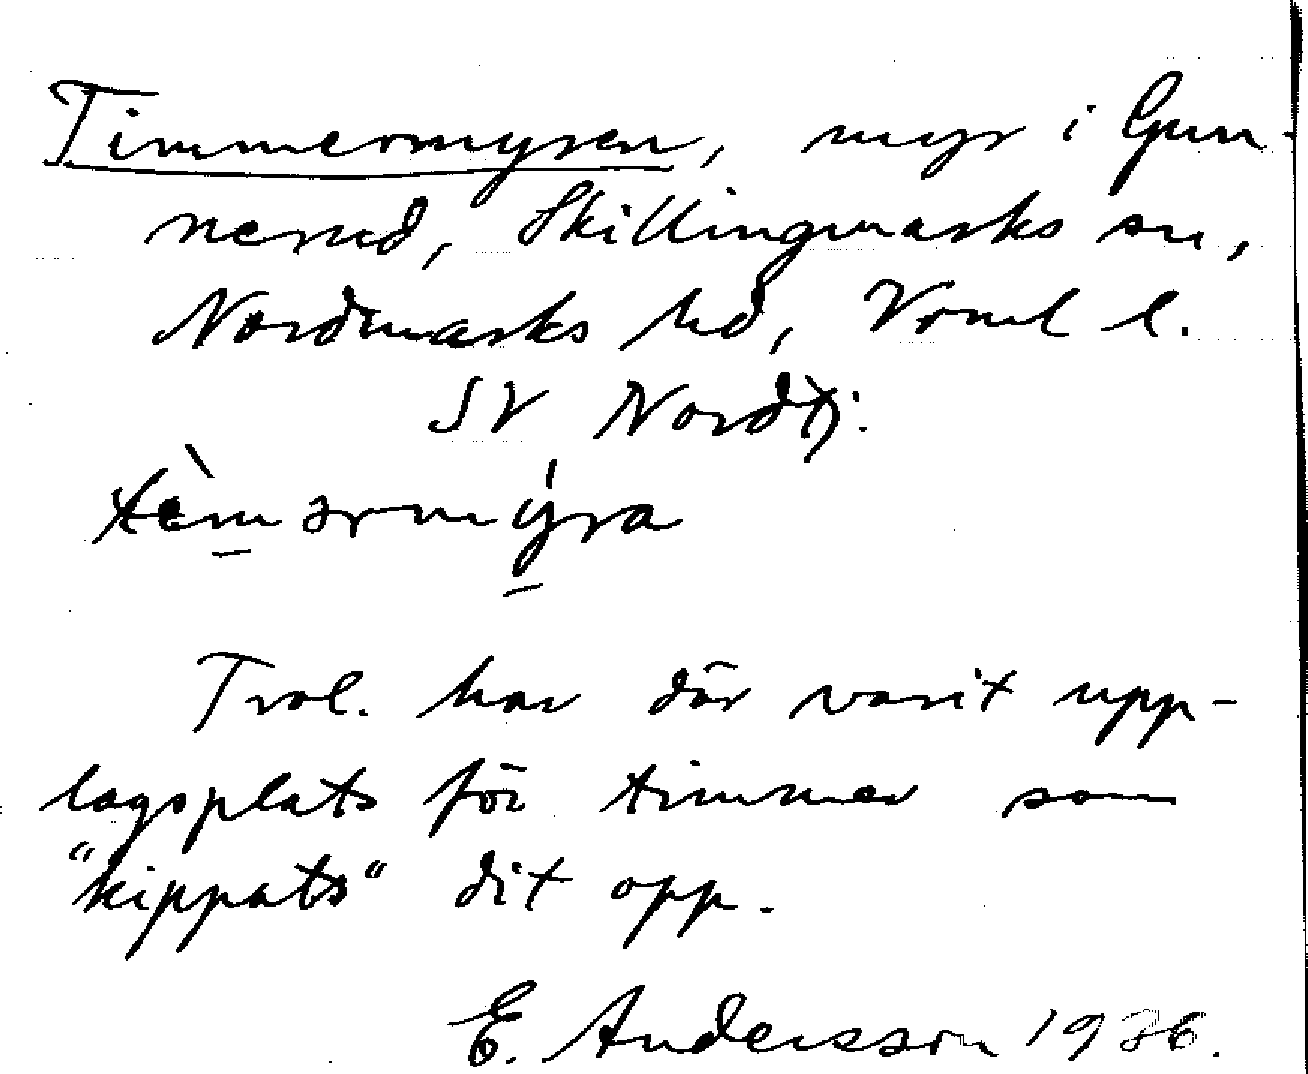 Timmermyren, myr i Gun-
nerud, Skillingmarks sn,
Nordmarks hd, Vrml l.
SV Nordtj:
tὲmərmýra
Trol. har där varit upp-
lagsplats för timmer som
"kippats" dit opp.
E. Andersson 1936.